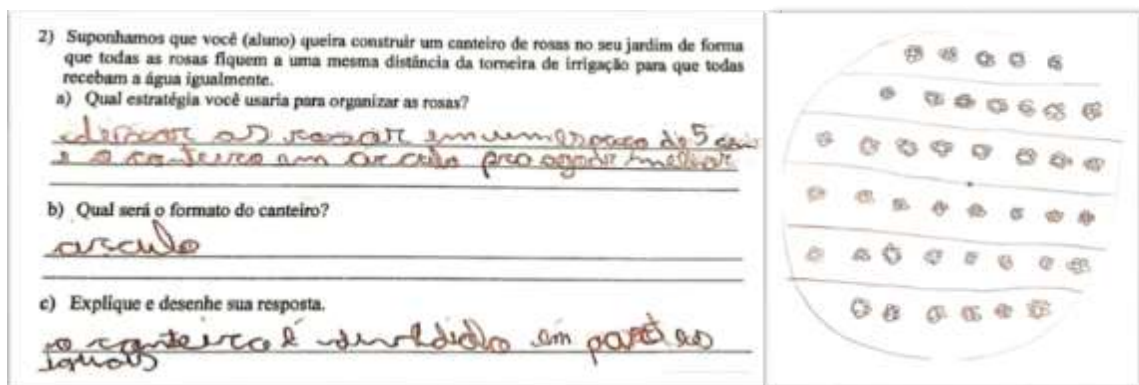 2) Suponhamos que você (aluno) queira construir um canteiro de rosas no seu jardim de forma
que todas as rosas fiquem a uma mesma distância da torneira de irrigação para que todas
recebam a água igualmente.
a) Qual estratégia você usaria para organizar as rosas?
as em um espaço de 5 
e o canteiro em melhor
b) Qual será o formato do canteiro?
c) Explique e desenhe sua resposta.
o canteiro é em partes
iguais